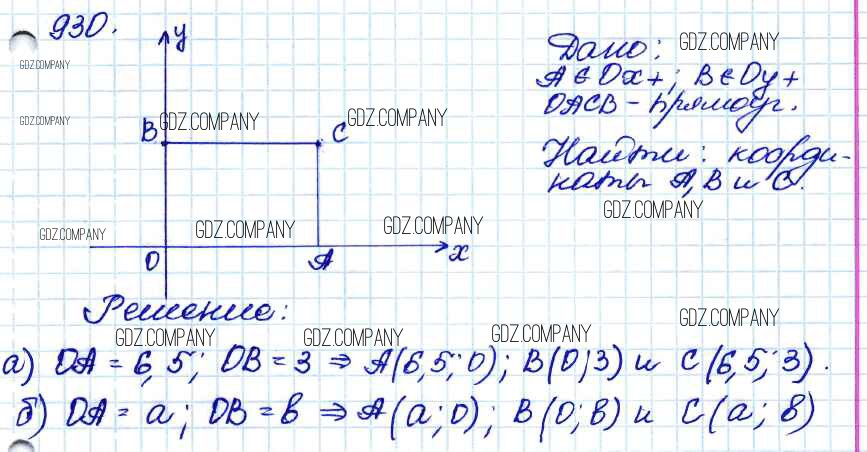 930.
y
Дано: GDZ.COMPANY
GDZ.COMPANY
A ∈ Ox+; B ∈ Oy+
OACB - прямоуг.
GDZ.COMPANY
B GDZ.COMPANY C GDZ.COMPANY
Найти: коорди-
наты A, B и C.
GDZ.COMPANY
GDZ.COMPANY GDZ.COMPANY GDZ.COMPANY
O A x
Решение:
GDZ.COMPANY GDZ.COMPANY GDZ.COMPANY GDZ.COMPANY
а) OA = 6,5; OB = 3 ⇒ A(6,5; 0); B(0; 3) и C(6,5; 3).
б) OA = a; OB = b ⇒ A(a; 0); B(0; b) и C(a; b)